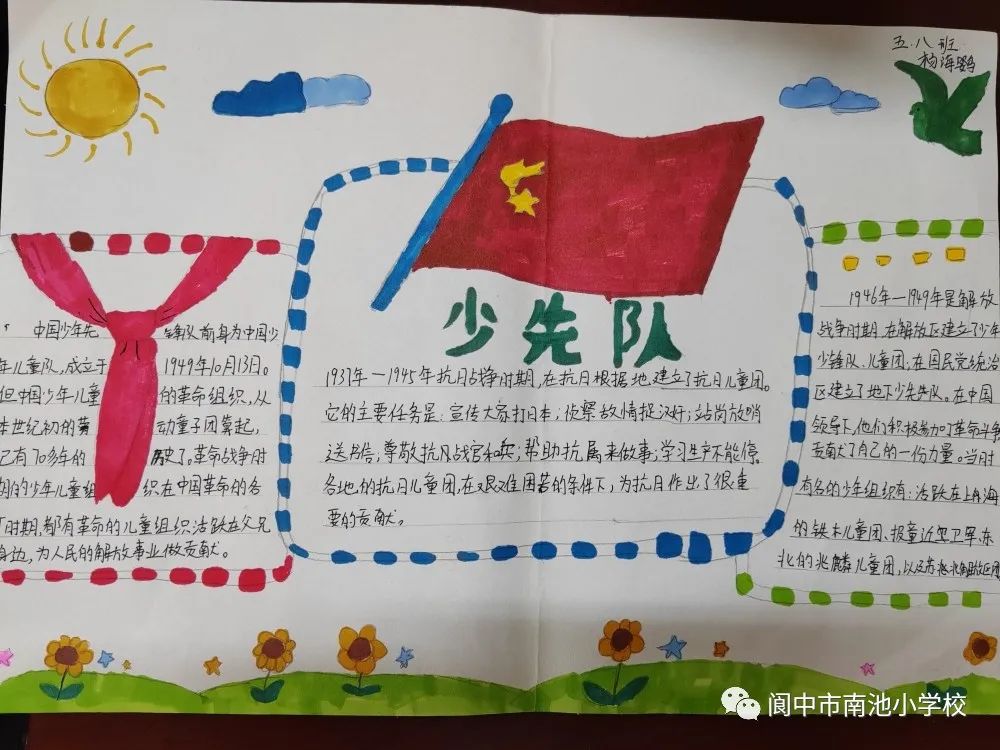 五.八班
杨海
少先队
中国少年先锋队前身为中国少
年儿童队,成立于1949年10月13日。
但中国少年儿童的革命组织,从
本世纪初的动童子团算起,
已有70多年的历史了。革命战争时
期的少年儿童组织在中国革命的各
时期,都有革命的儿童组织活跃在父兄
身边,为人民的解放事业做贡献。
1937年一1945年抗日战争时期,在抗日根据地,建立了抗日儿童团。
它的主要任务是:宣传大家打日本;侦察敌情捉汉奸;站岗放哨
送书信,尊敬抗日战官和兵;帮助抗属来做事;学习生产不能停。
各地的抗日儿童团,在艰难困苦的条件下,为抗日作出了很重
要的贡献。
1946年一1949年是解放
战争时期,在解放区建立了少年
少锋队、儿童团,在国民党统治
区建立了地下少先队。在中国
领导下,他们积极参加了革命斗争
贡献了自己的一份力量。当时
有名的少年组织有:活跃在上海
的铁木儿童团、报童近卫军,东
北的兆麟儿童团,以
阆中市南池小学校